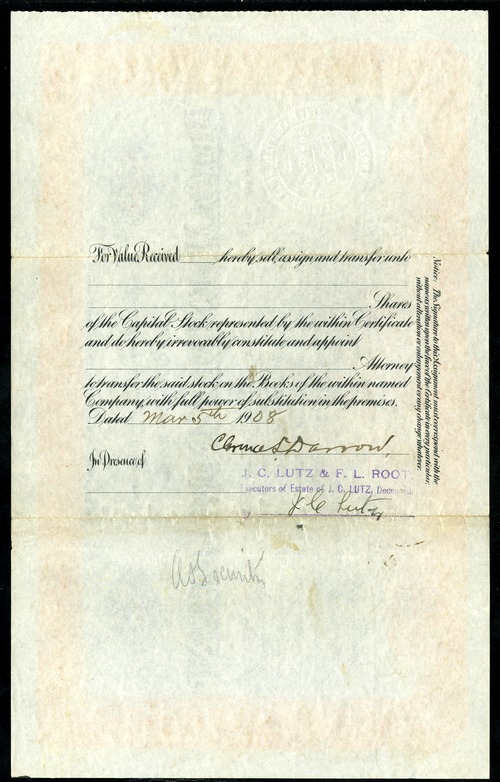 For Value Received hereby sell, assign and transfer unto
Shares
of the Capital Stock represented by the within Certificate
and do hereby irrevocably constitute and appoint
Attorney
to transfer the said stock on the Books of the within named
Company, with full power of substitution in the premises.
Dated Mar 5th 1908
Clarence S. Darrow,
In Presence of
J. C. LUTZ & F. L. ROOT
Executors of Estate of J. C. LUTZ, Deceased.
By J C Lutz
Notice: The Signature to this Assignment must correspond with the
name as written upon the face of the Certificate in every particular,
without alteration or enlargement or any change whatever.